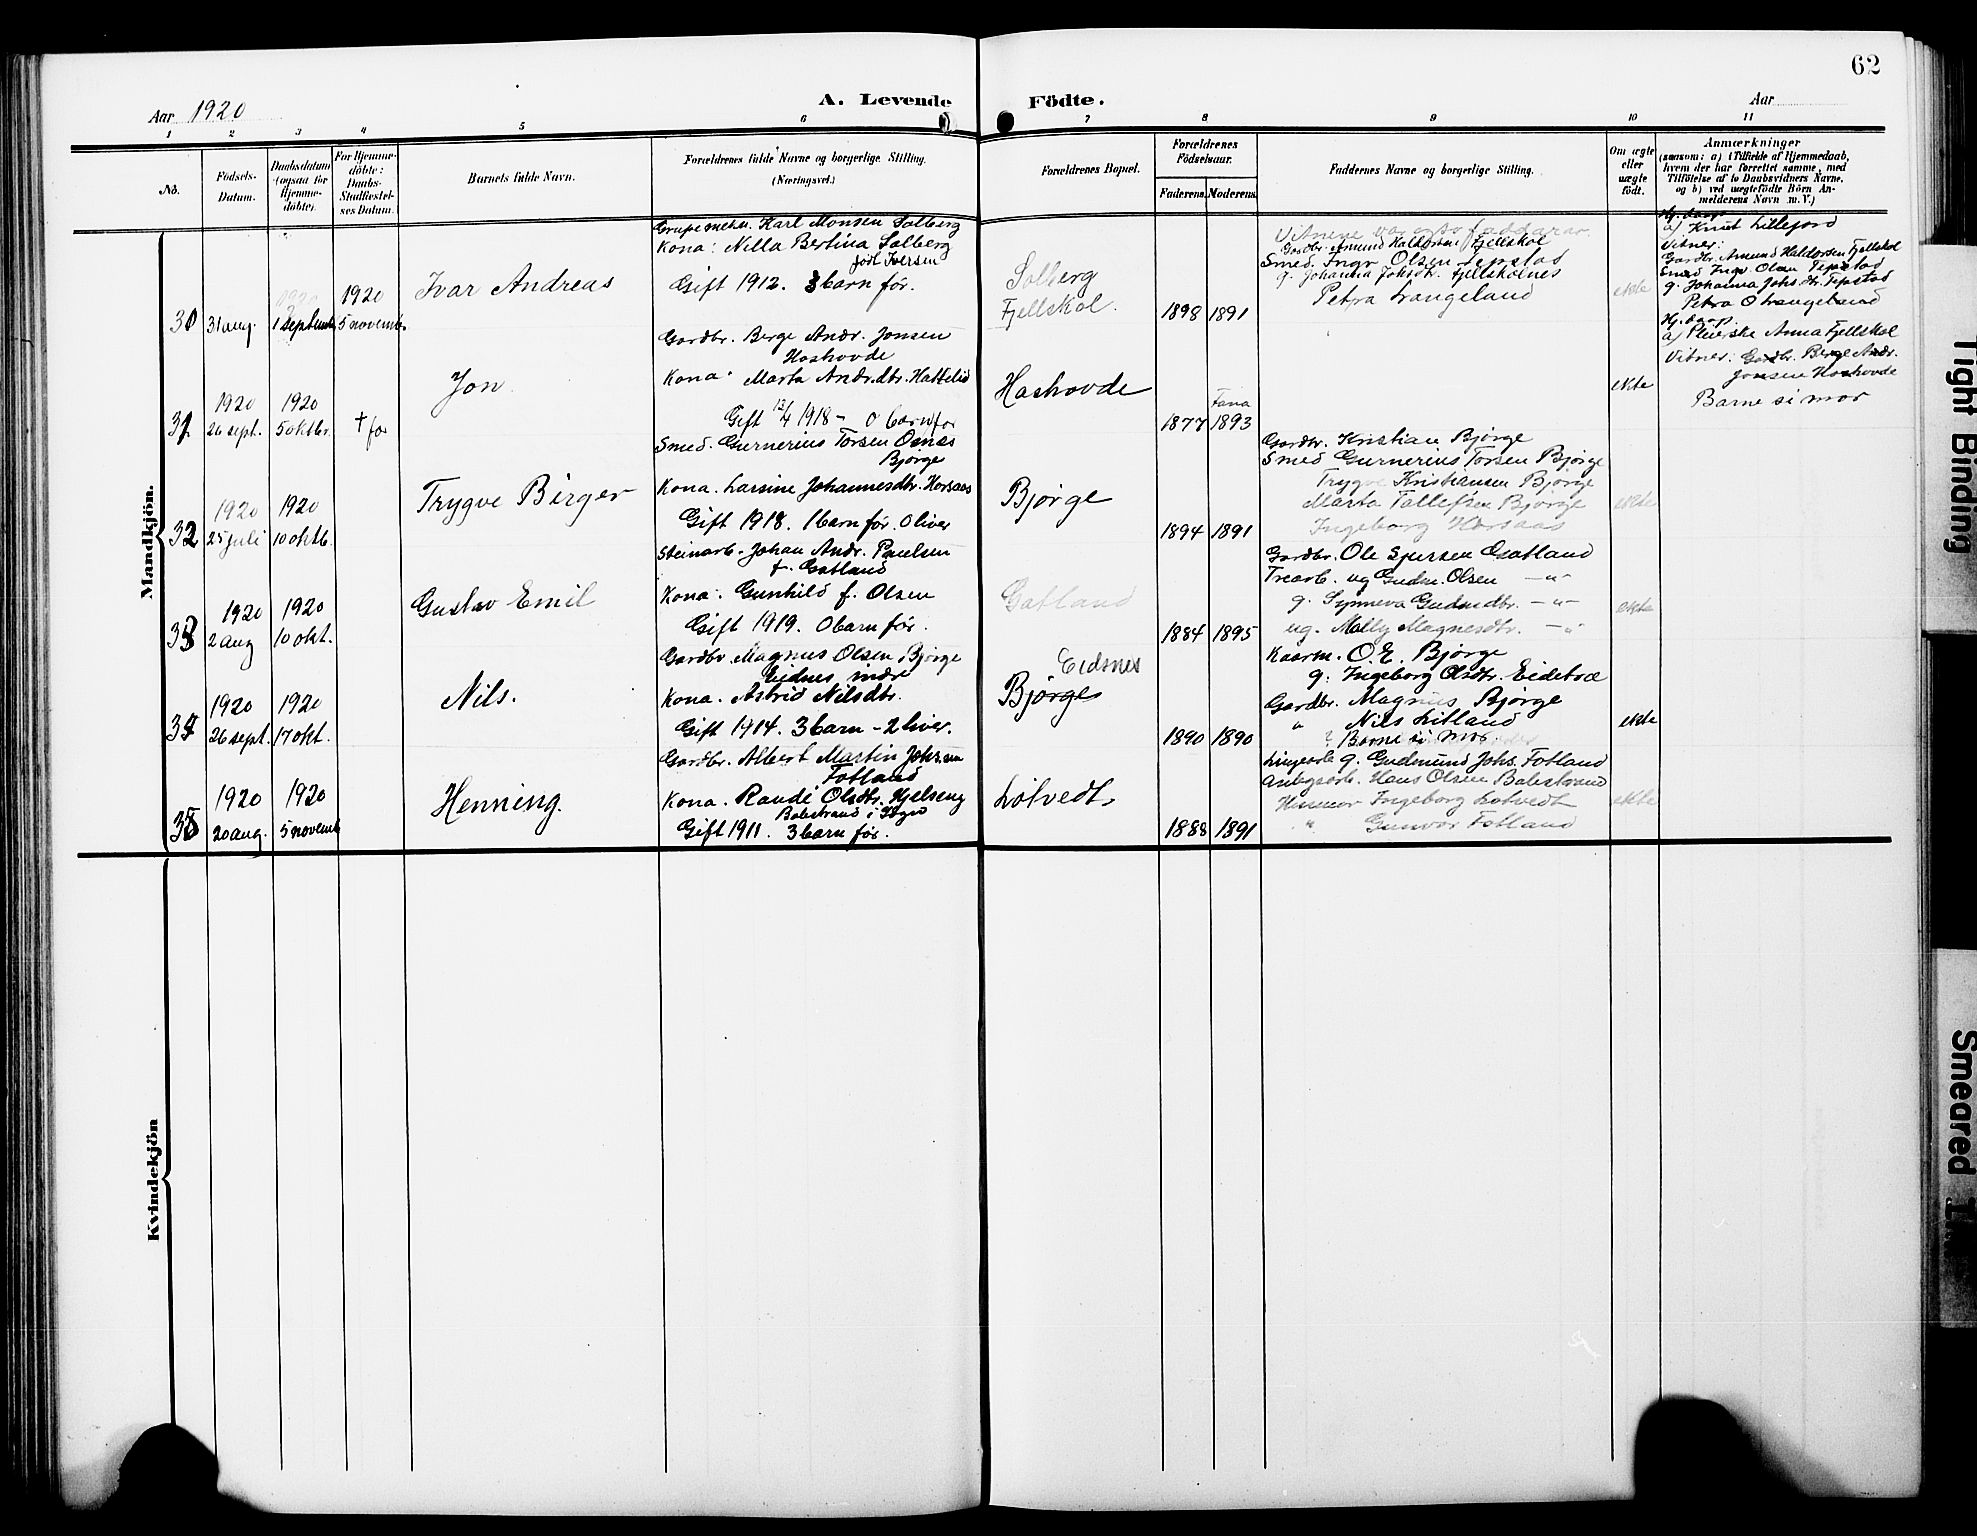 62
Aar 1920
A. Levende
Födte.
Aar
1 2 3 4 5 6 7 8 9 10 11
No.
Födsels-
Datum.
Daabsdatum
(ogsaa for
Hjemme-
döbte).
For Hjemme-
döbte:
Daabs-
Stadfæstel-
ses Datum.
Barnets fulde Navn.
Forældrenes fulde Navne og borgerlige Stilling.
(Næringsvei.)
Forældrenes Bopæl.
Forældrenes
Födselsaar.
Faderens.
Moderens.
Faddernes Navne og borgerlige Stilling.
Om ægte
eller
uægte
födt.
Anmærkninger
(saasom: a) i Tilfælde af Hjemmedaab,
hvem der har forrettet samme, med
Tilföielse af to Daabsvidners Navne,
og b) ved uægtefödte Börn An-
melderens Navn m. V.)
Mandkjön.
30
31 aug.
1920
1 septemb.
1920
5 novemb.
Ivar Andreas
Karl Monsen Solberg
Kona: Nilla Bertina Solberg
född Iversen
Gift 1912. 3 barn før.
Solberg
Fjellskol.
1898
1891
Vitnene var ogso faddarar.
Gardbr. Amund Haldorsen Fjellskol
Smed. Ingv. Olsen Tepstad
g. Johanna Johsdtr. Fjellskolnes
Petra Langeland
ekte
Hj. daap
a) Knut Lillefjord
Vitner:
Gardbr. Amund Haldorsen Fjellskol
Smed Ingv. Olsen Tepstad
g. Johanna Johs.dtr. Tepstad
Petra O Langeland
31
1920
26 sept.
1920
5 oktbr.
† før
Jon
Gardbr. Berge Andr. Jonsen
Hashovde
Kona: Marta Andr.dtr. Hattelid
Gift 13/4 1918 - 0 barn før
Hashovde
1877
Fana
1893
ekte
Hj. daap
a) Pleierske Anna Fjellskol
Vitner: Gardbr. Berge Andr.
Jonsen Hashovde
Barne si mor
32
1920
25 juli
1920
10 oktb.
Trygve Birger
Smed. Gunnerius Torsen Osnes
Bjørge
Kona. Larsine Johannesdtr. Horsaas
Gift 1918. 1 barn før. 0 liver
Bjørge
1894
1891
Gardbr. Kristian Bjørge
Smed Gunnerius Torsen Bjørge
Trygve Kristiansen Bjørge
Marta Tollefsen Bjørge
Ingeborg Horsaas
ekte
33
1920
2 aug
1920
10 okt.
Gustav Emil
Steinarb. Johan Andr. Paulsen
f. Gatland
Kona: Gunhild f. Olsen
Gift 1919. 0 barn før.
Gatland
1884
1895
Gardbr. Ole Sjursen Gatland
Trearb. ug Gudm. Olsen — " —
g. Synneva Gudmdtr. — " —
ug. Molly Magnesdtr. — "
ekte
34
1920
26 sept.
1920
17 okt.
Nils.
Gardbr. Magnus Olsen Bjørge
Eidnes
Kona. Astrid Nilsdtr.
Gift 1914. 3 barn - 2 liver.
Eidsnes
Bjørge
1890
1890
Kaarm. O. E. Bjørge
g. Ingeborg Olsdtr. Eidetræ
Gardbr. Magnus Bjørge
" Nils Litland
Barne si mor
ekte
35
1920
20 aug.
1920
5 novemb
Henning.
Gardbr. Albert Martin Johnsen
Fotland
Kona. Randi Olsdtr. Hjelseng
Balestrand i Sogn
Gift 1911. 3 barn før.
Lotvedt
1888
1891
g. Gudmund Johs. Fotland
Hans Olsen Balestrand
Ingeborg Lotvedt
" Gunvor Fotland
ekte
Kvindekjön
Tight Binding
Smeared